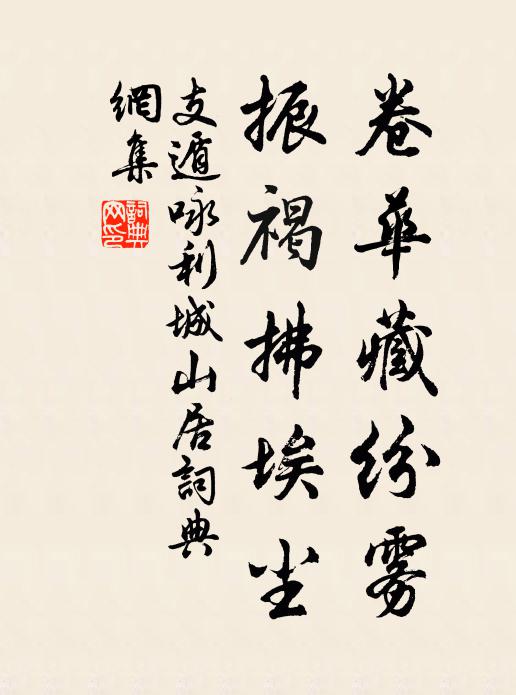 卷華藏紛雾
振褐拂埃尘
支遁咏利城山居詞典
網集
詞典网印